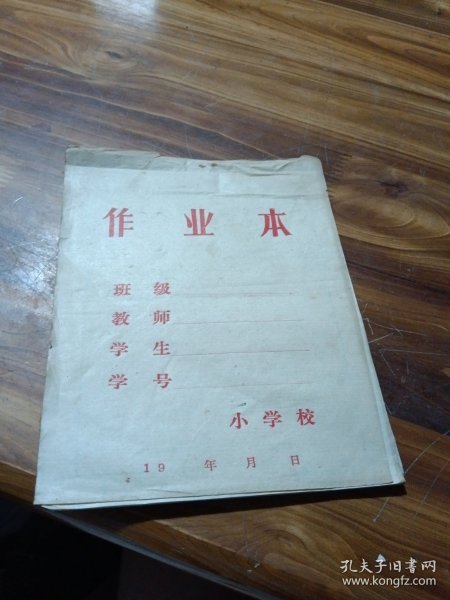 作业本
班级
教师
学生
学号
小学校
19 年 月 日
孔夫子旧书网
www.kongfz.com